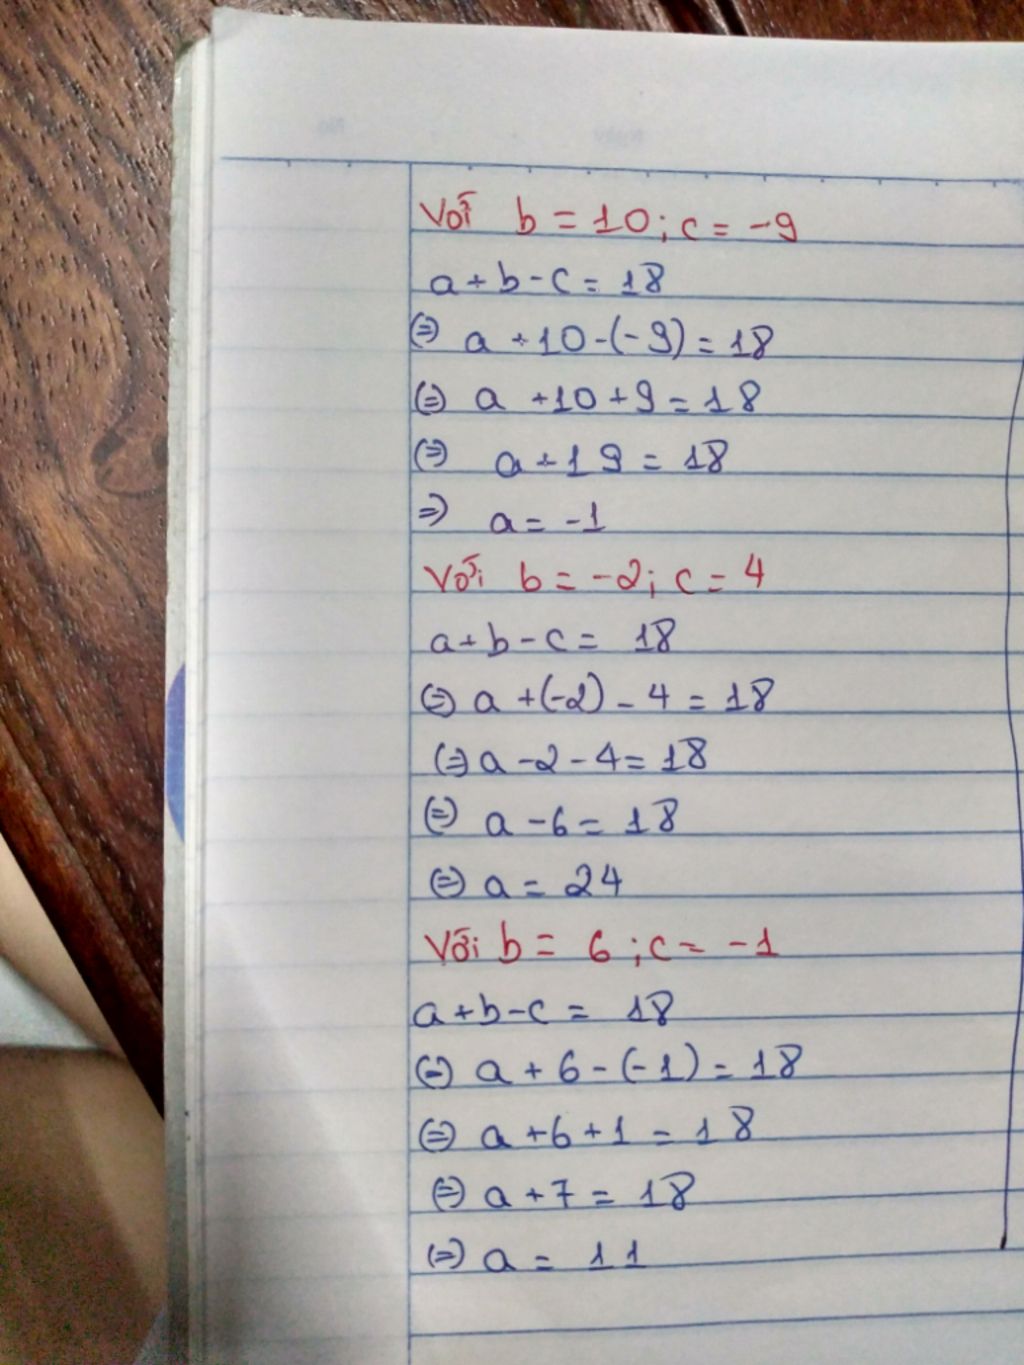 Với b = 10; c = -9
a + b - c = 18
⇔ a + 10 - (-9) = 18
⇔ a + 10 + 9 = 18
⇔ a + 19 = 18
⇒ a = -1
Với b = -2; c = 4
a + b - c = 18
⇔ a + (-2) - 4 = 18
⇔ a - 2 - 4 = 18
⇔ a - 6 = 18
⇔ a = 24
Với b = 6; c = -1
a + b - c = 18
⇔ a + 6 - (-1) = 18
⇔ a + 6 + 1 = 18
⇔ a + 7 = 18
⇔ a = 11